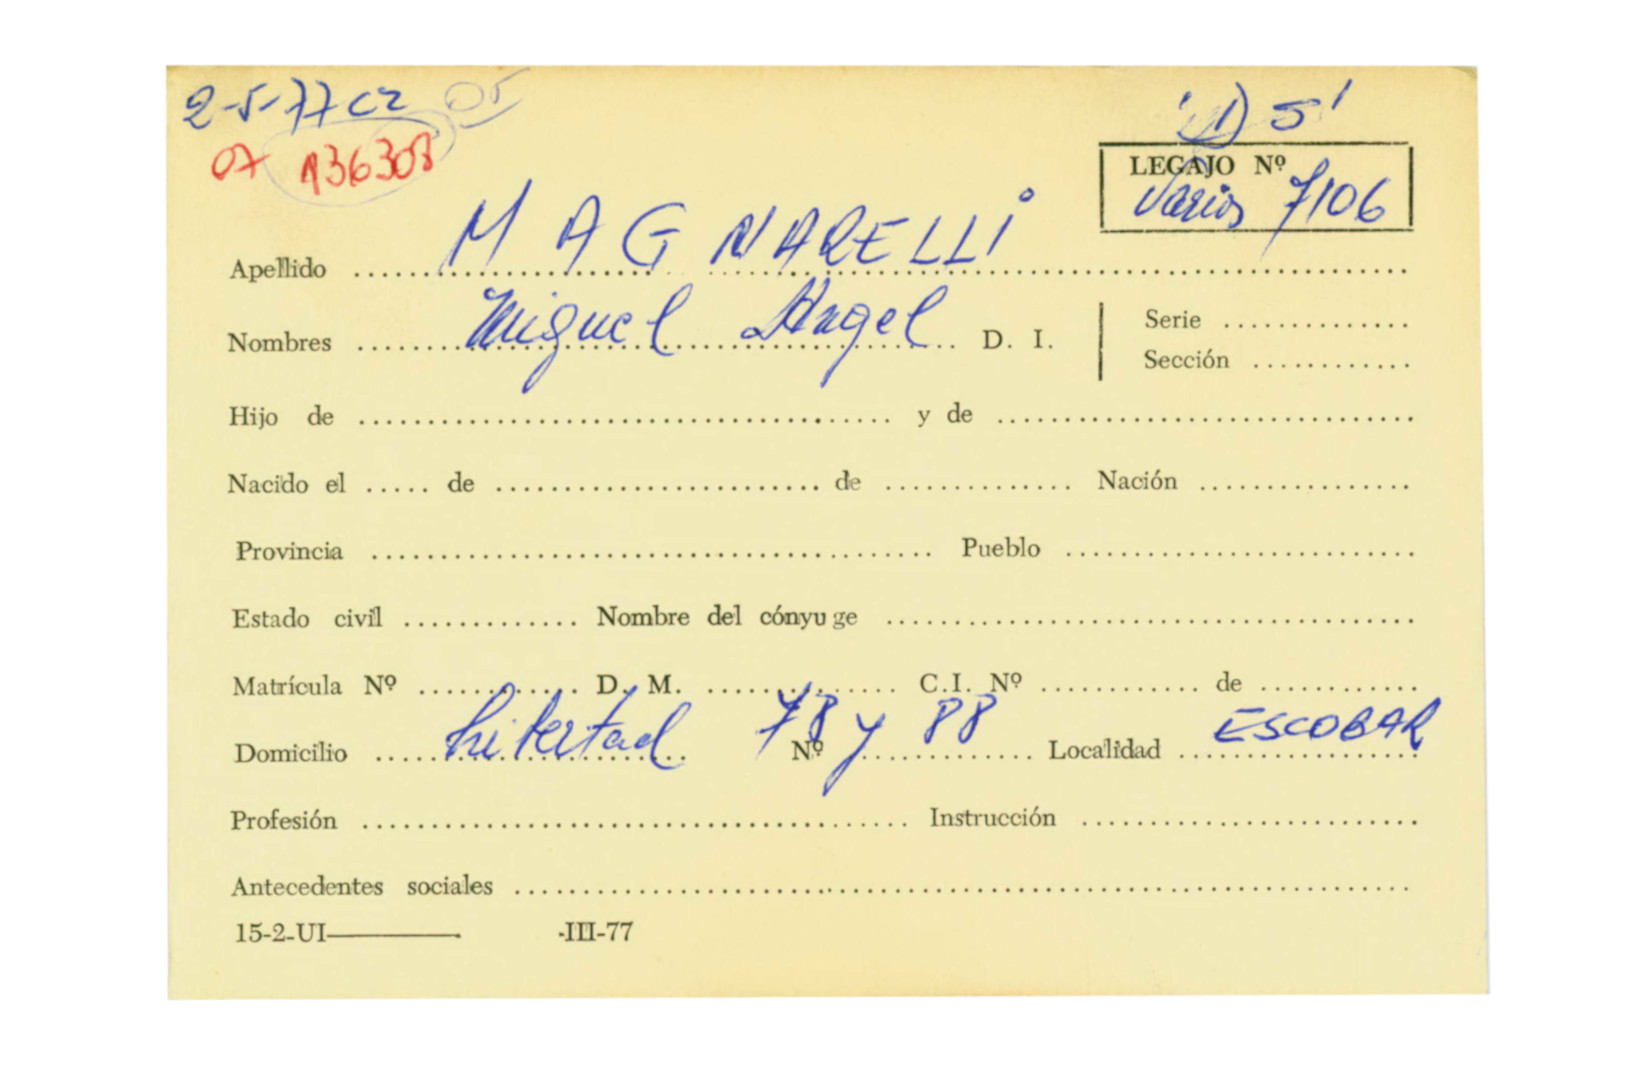 2-5-77 CZ 05
07 136308
1) 5'
LEGAJO Nº
Varios 7106
Apellido MAGNARELLI
Nombres Miguel Angel D. I. Serie
Sección
Hijo de y de
Nacido el de de Nación
Provincia Pueblo
Estado civil Nombre del cónyuge
Matrícula Nº D. M. C.I. Nº de
Domicilio Libertad Nº 78 y 88 Localidad ESCOBAR
Profesión Instrucción
Antecedentes sociales
15-2-UI -III-77